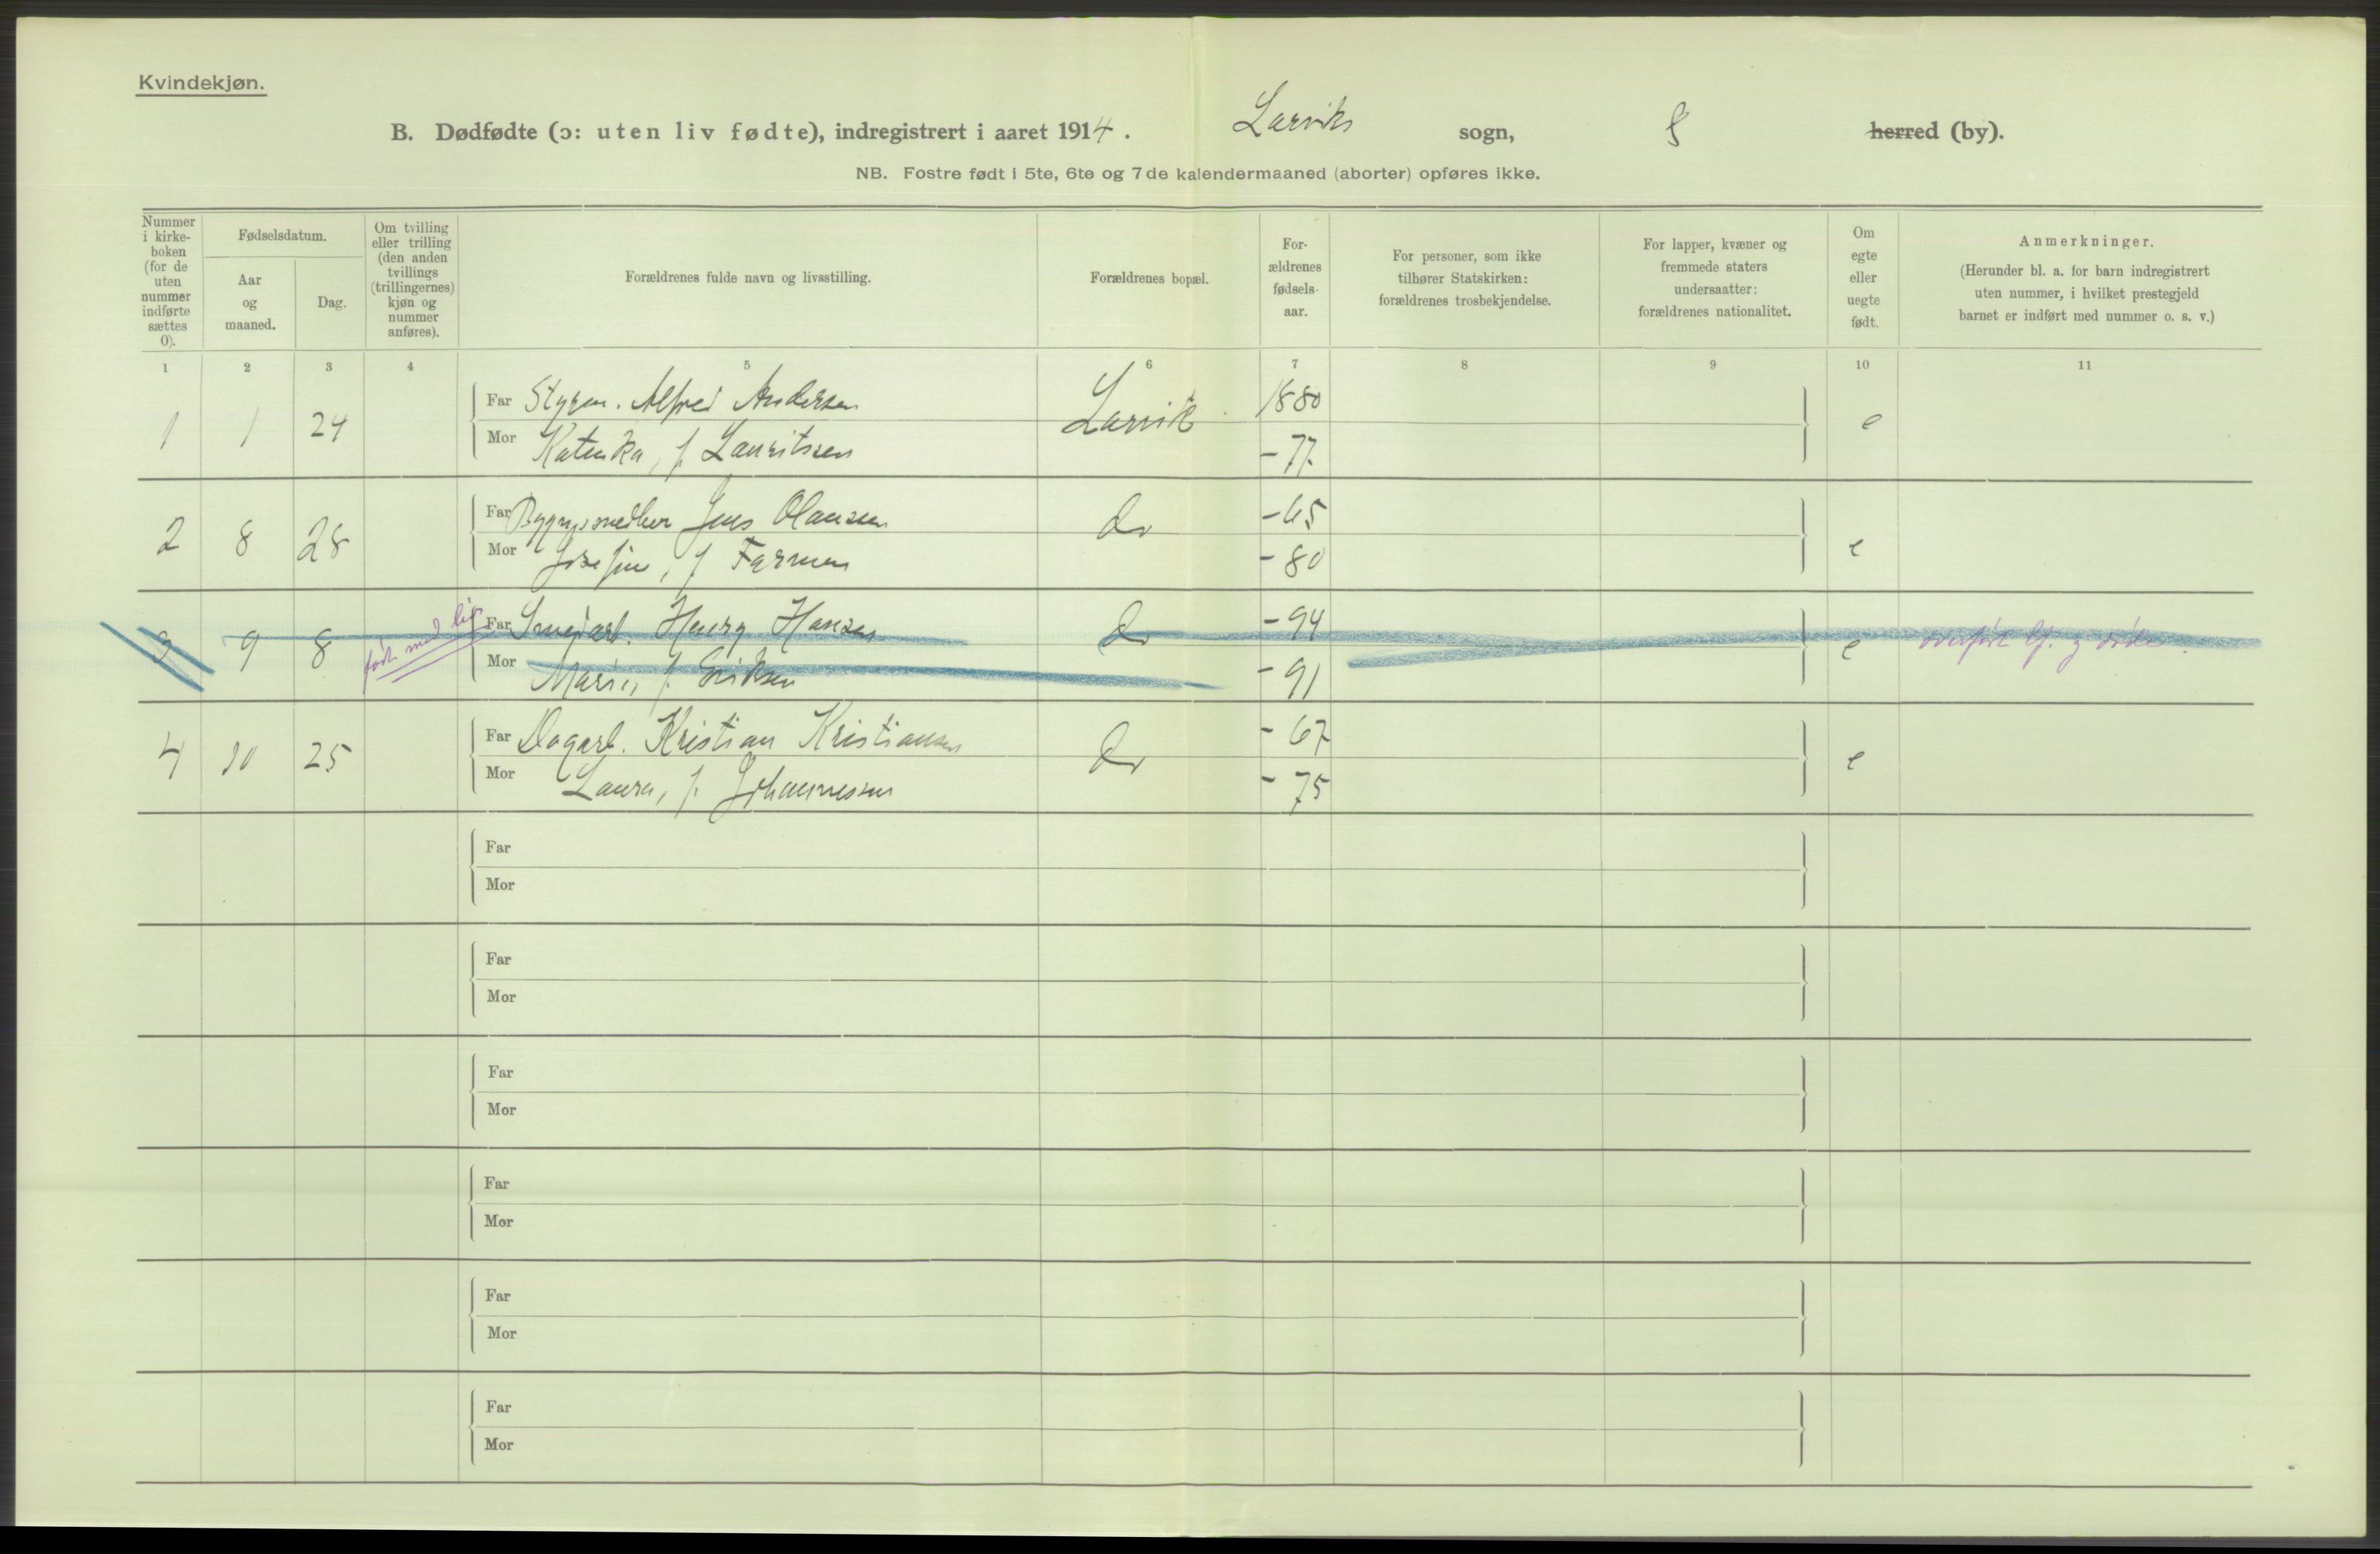 Kvindekjøn.
B. Dødfødte (ɔ: uten liv fødte), indregistrert i aaret 1914. Larviks sogn, herred (by).
NB. Fostre født i 5te, 6te og 7de kalendermaaned (aborter) opføres ikke.
Nummer i kirke-boken (for de uten nummer indførte sættes 0).
Fødselsdatum.
Aar og maaned.
Dag.
Om tvilling eller trilling (den anden tvillings (trillingernes) kjøn og nummer anføres).
Forældrenes fulde navn og livsstilling.
Forældrenes bopæl.
For-ældrenes fødsels-aar.
For personer, som ikke tilhører Statskirken: forældrenes trosbekjendelse.
For lapper, kvæner og fremmede staters undersaatter: forældrenes nationalitet.
Om egte eller uegte født.
Anmerkninger.
(Herunder bl. a. for barn indregistrert uten nummer, i hvilket prestegjeld barnet er indført med nummer o. s. v.)
1 2 3 4 5 6 7 8 9 10 11
1 1 24 Far Styrm. Alfred Andersen Larvik 1880 e
Mor Katinka, f. Lauritsen - 77
2 8 28 Far Jens Olausen do - 65 e
Mor Josefine, f. Farmen - 80
3 9 8 født med liv Far Smedarb. Henry Hansen do - 94 e overført
Mor Marie, f. Eriksen - 91
4 10 25 Far Dagarb. Kristian Kristiansen do - 67 e
Mor Laura, f. Johannessen - 75
Far
Mor
Far
Mor
Far
Mor
Far
Mor
Far
Mor
Far
Mor